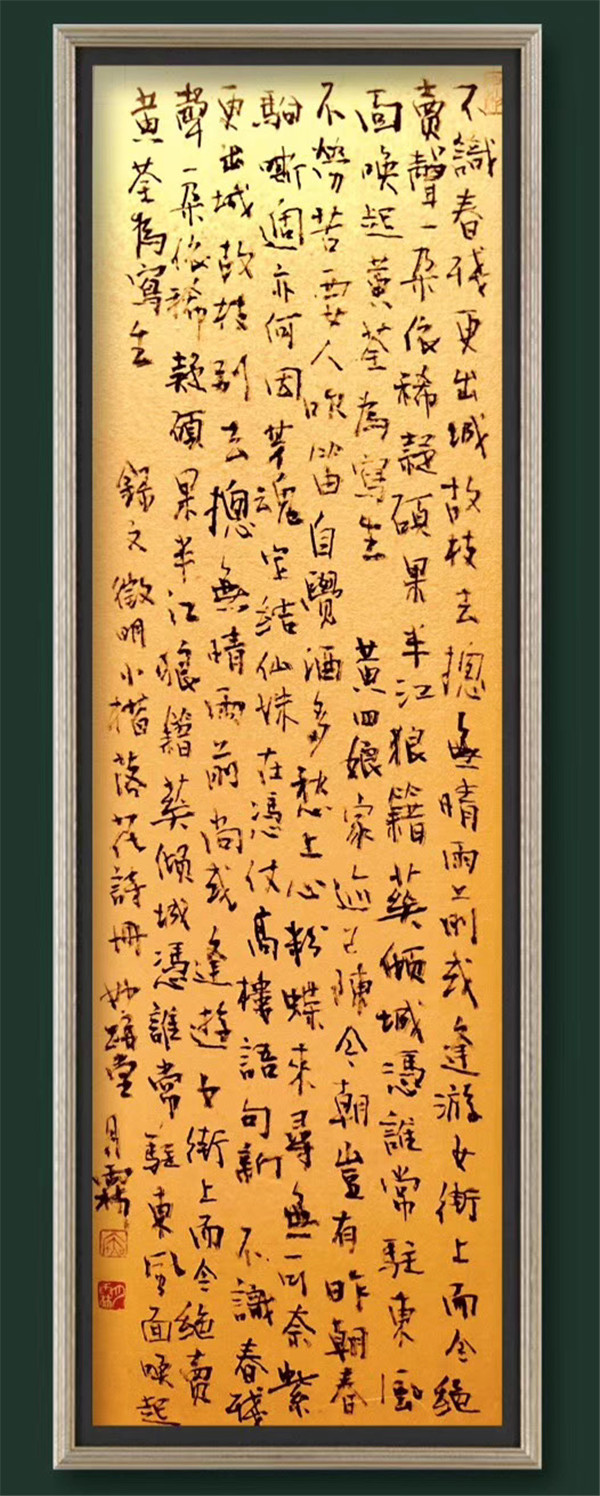 不識春殘更出城故枝去揔無晴雨前或逢游女街上而今絕
賣聲一朵依稀疑碩果半江狼籍葬傾城憑誰常駐東風
面喚起黃荃為寫生 黃四娘家迹已陳今朝豈有昨朝春
不勞苦要人吹笛自覺酒多愁上心粉蝶來尋無一叫奈紫
騮嘶過亦何因芳魂定結仙姝在憑仗高樓語句新 不識春殘
更出城故枝別去揔無晴雨前尚或逢游女街上而今絕賣
聲一朵依稀疑碩果半江狼籍葬傾城憑誰常駐東風面喚起
黃荃為寫生
錄文徵明小楷落花詩冊 妙 堂 月霖